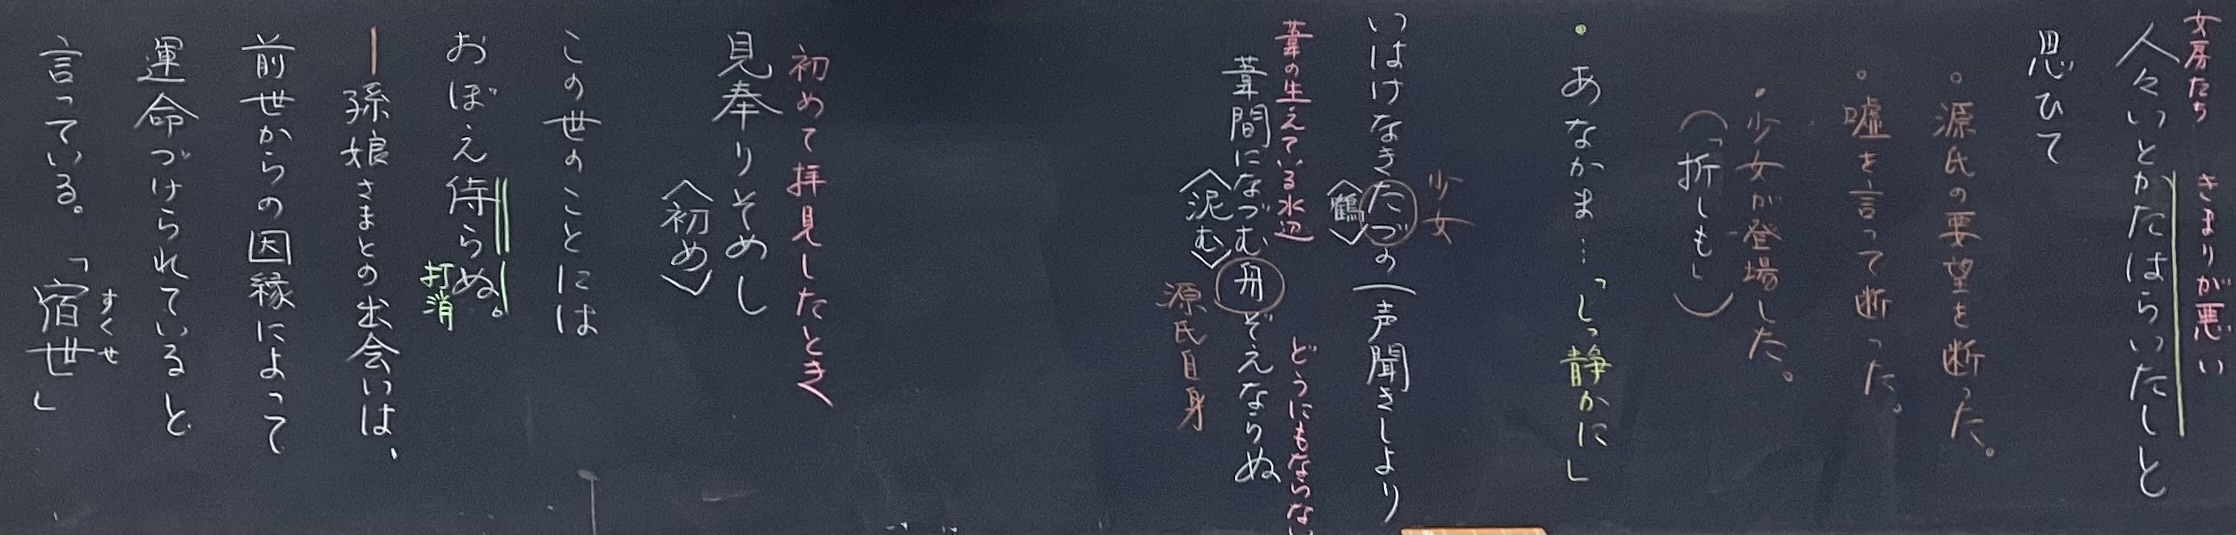 女房たち　きまりが悪い
人々いとかたはらいたしと
思ひて
・源氏の要望を断った。
・嘘を言って断った。
・少女が登場した。
（「折しも」）
・あなかま…「しっ静かに」
少女
いはけなきたづの一声聞きしより
〈鶴〉
葦の生えている水辺　どうにもならない
葦間になづむ舟ぞえならぬ
〈泥む〉
源氏自身
初めて拝見したとき
見奉りそめし
〈初め〉
この世のことには
おぼえ侍らぬ。
打消
孫娘さまとの出会いは、
前世からの因縁によって
運命づけられていると
言っている。「宿世」
すくせ